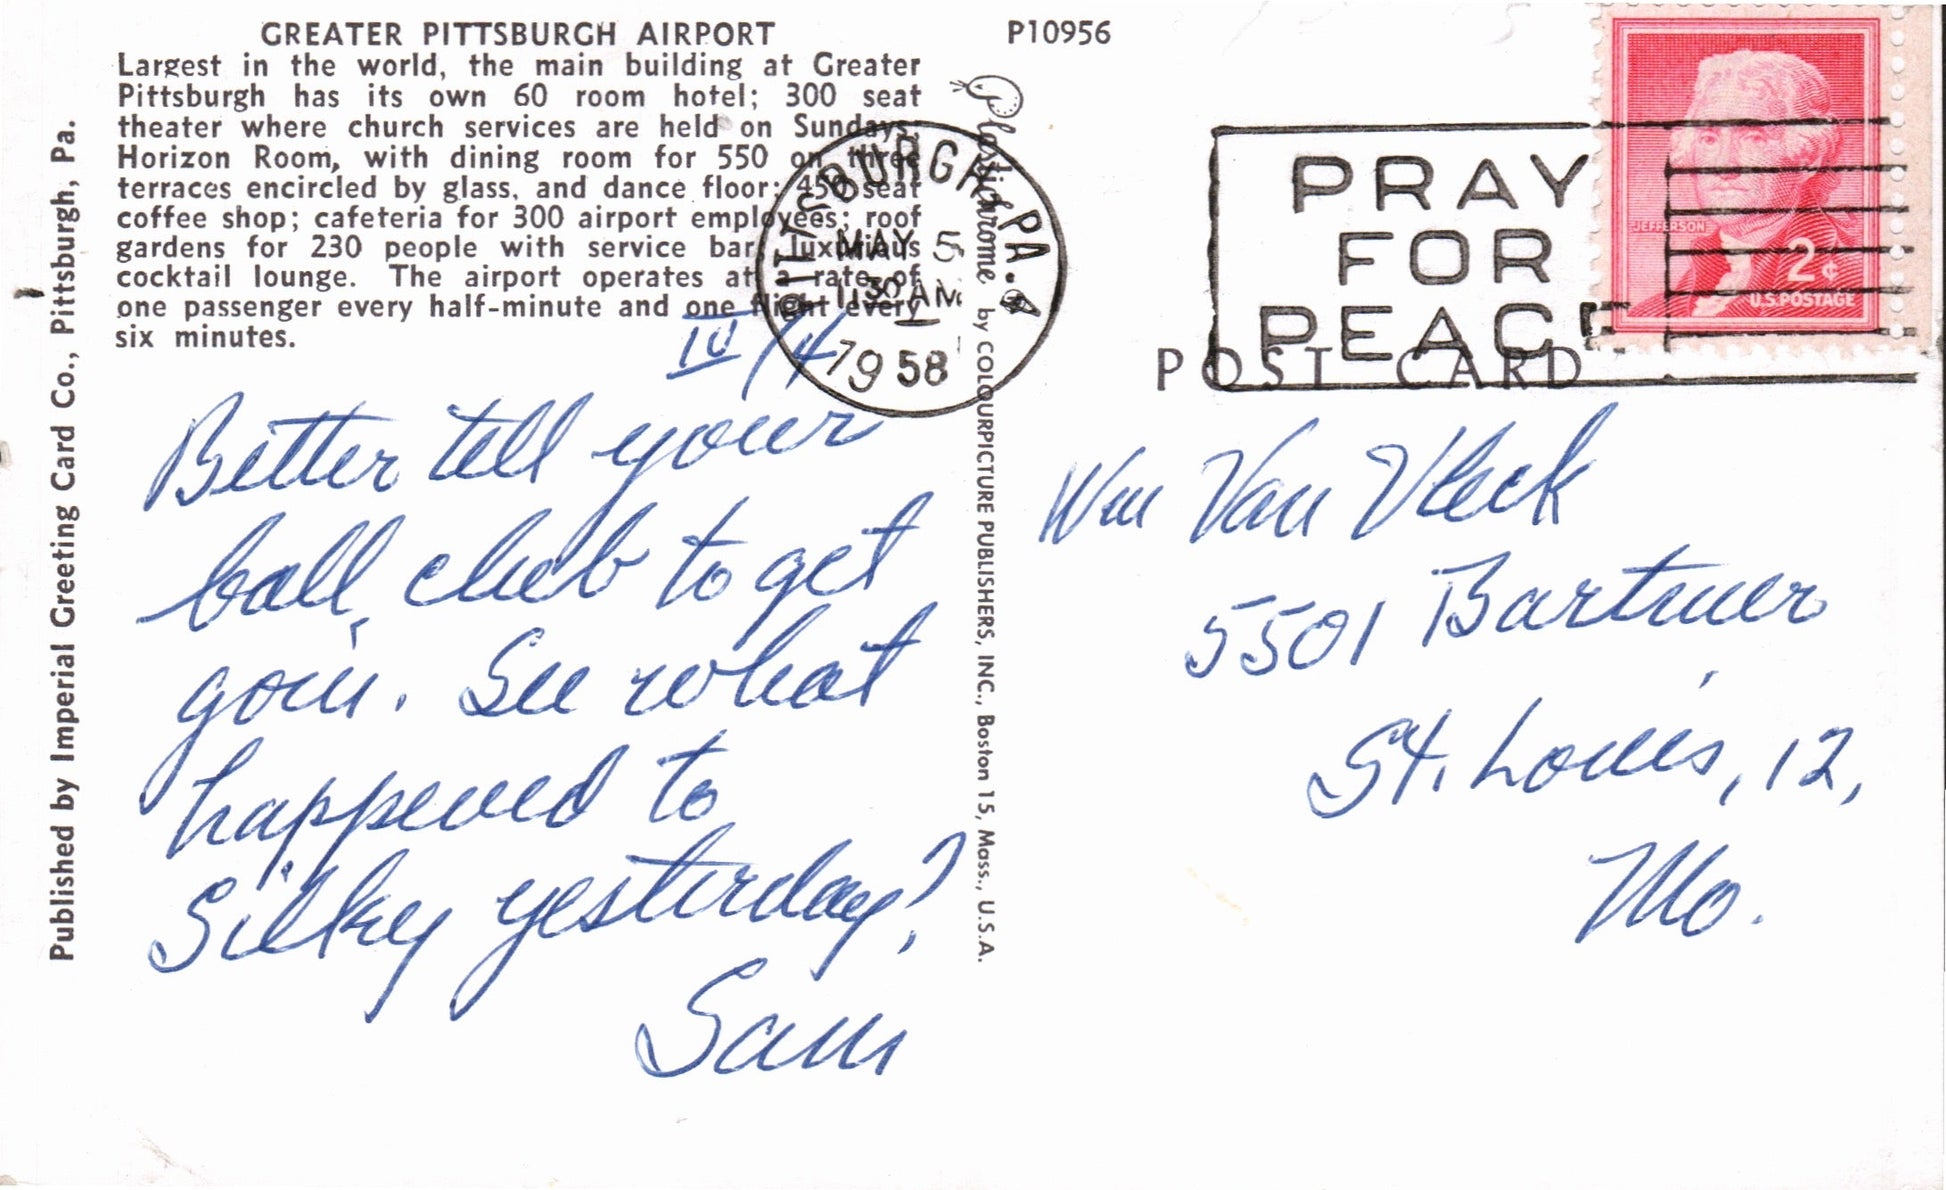 GREATER PITTSBURGH AIRPORT
Largest in the world, the main building at Greater
Pittsburgh has its own 60 room hotel; 300 seat
theater where church services are held on Sundays;
Horizon Room, with dining room for 550 on three
terraces encircled by glass, and dance floor; 450 seat
coffee shop; cafeteria for 300 airport employees; roof
gardens for 230 people with service bar, luxurious
cocktail lounge. The airport operates at a rate of
one passenger every half-minute and one flight every
six minutes.
P10956
Published by Imperial Greeting Card Co., Pittsburgh, Pa.
Plastichrome by COLOURPICTURE PUBLISHERS, INC., Boston 15, Mass., U.S.A.
PITTSBURGH, PA.
MAY 5
1130 AM
1958
PRAY
FOR
PEACE
JEFFERSON
2¢
U.S. POSTAGE
POST CARD
Better tell your
ball club to get
goin'. See what
happened to
Silky yesterday?
Sam
Wm Van Vleck
5501 Bartmer
St. Louis, 12,
Mo.